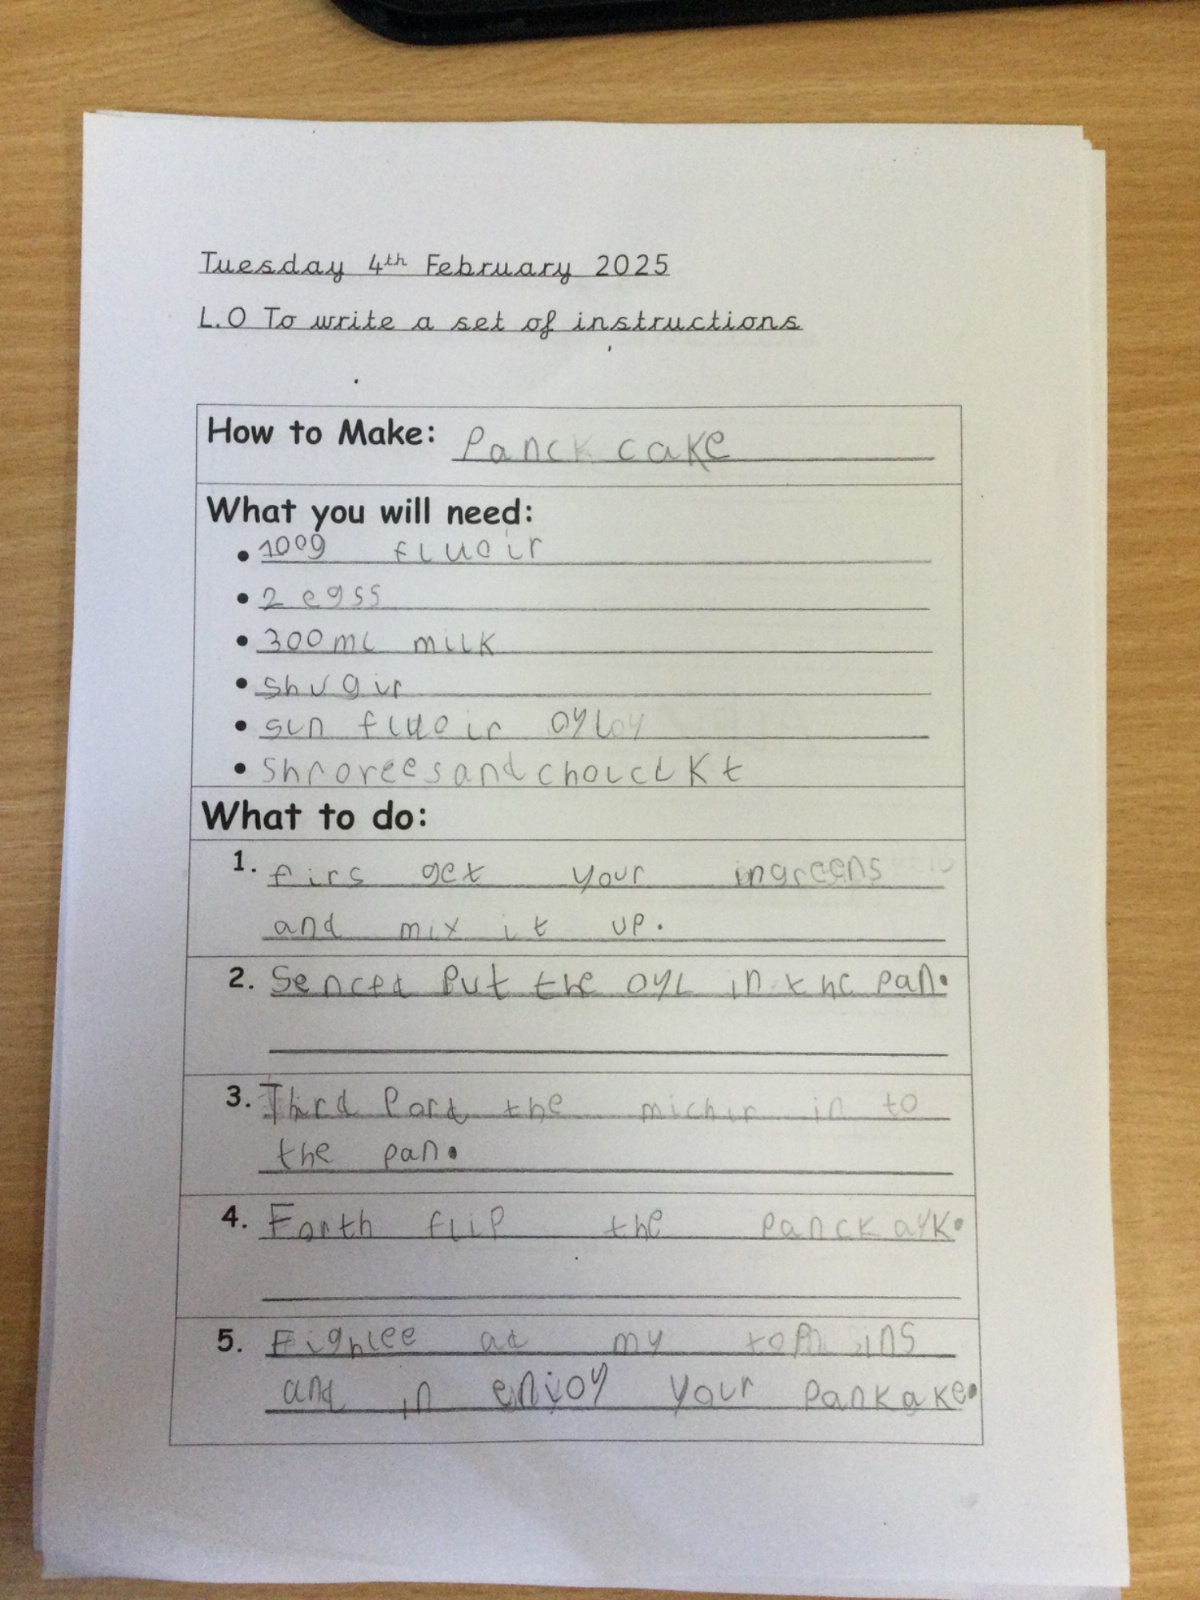 Tuesday 4th February 2025
L.O To write a set of instructions
How to Make: Panck cake
What you will need:
• 100g fluoir
• 2 egss
• 300ml milk
• shugir
• sun fluoir oyl
• Shroreesand choiclkt
What to do:
1. firs get your ingreens
and mix it up.
2. Sencet put the oyl in the pan.
3. Thrd Pord the michir in to
the pan.
4. Forth flip the panckayk.
5. Fighlee ad my topins
and in enjoy your pankake.